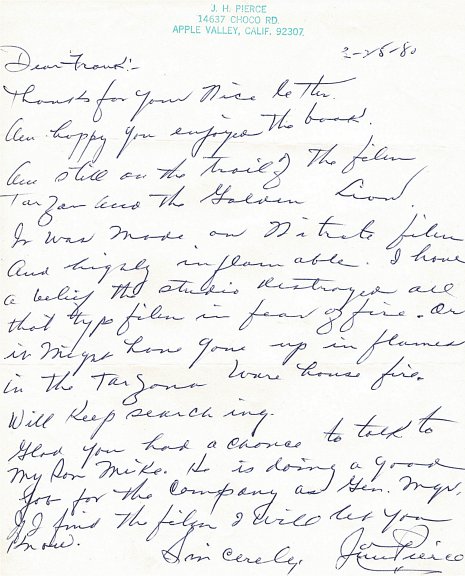 J. H. PIERCE
14637 CHOCO RD.
APPLE VALLEY, CALIF. 92307
2-28-80
Dear "Frank":-
Thanks for your Nice letter.
Am happy you enjoyed the book.
Am still on the trail of the film
Tarzan and the Golden Lion.
It was made on Nitrate film
And highly inflamable. I have
a belief the studio destroyed all
that type film in fear of fire. Or
it might have gone up in flames
in the Tarzana Ware house fire.
Will Keep searching.
Glad you had a chance to talk to
My Son Mike. He is doing a good
Job for the Company as Gen. Mgr.
If I find the film I will let you
Know.
Sincerely, Jim Pierce